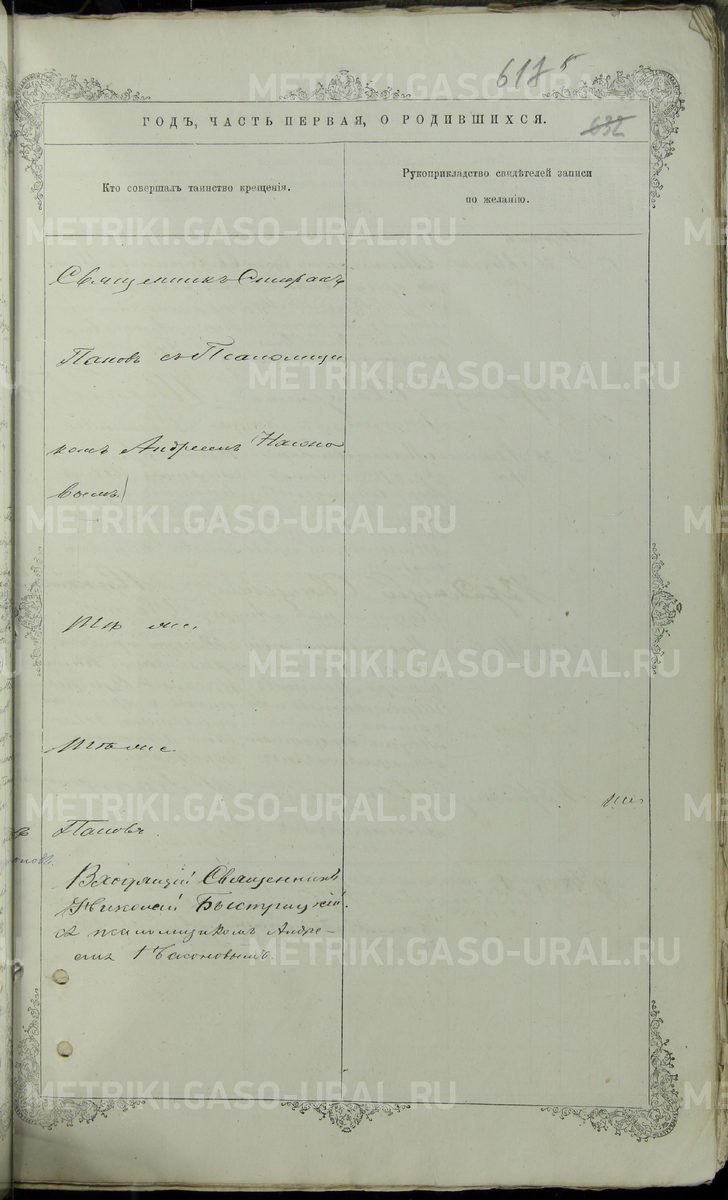 617
632
ГОДЪ, ЧАСТЬ ПЕРВАЯ, О РОДИВШИХСЯ.
Кто совершалъ таинство крещенія.
Рукоприкладство свидѣтелей записи
по желанію.
Священникъ
Пановъ съ Псаломщи
комъ Андреемъ Насоно
вымъ
Тѣ же.
Тѣ же.
Пановъ.
Входящій Священникъ
Николай Быстрицкій
съ псаломщикомъ Андре-
емъ Насоновымъ.
METRIKI.GASO-URAL.RU